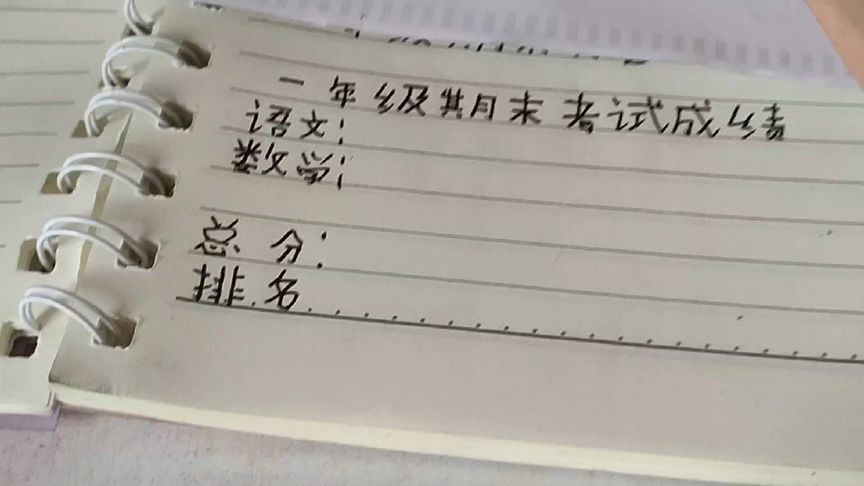 一年级期末考试成绩
语文：
数学：
总分：
排名